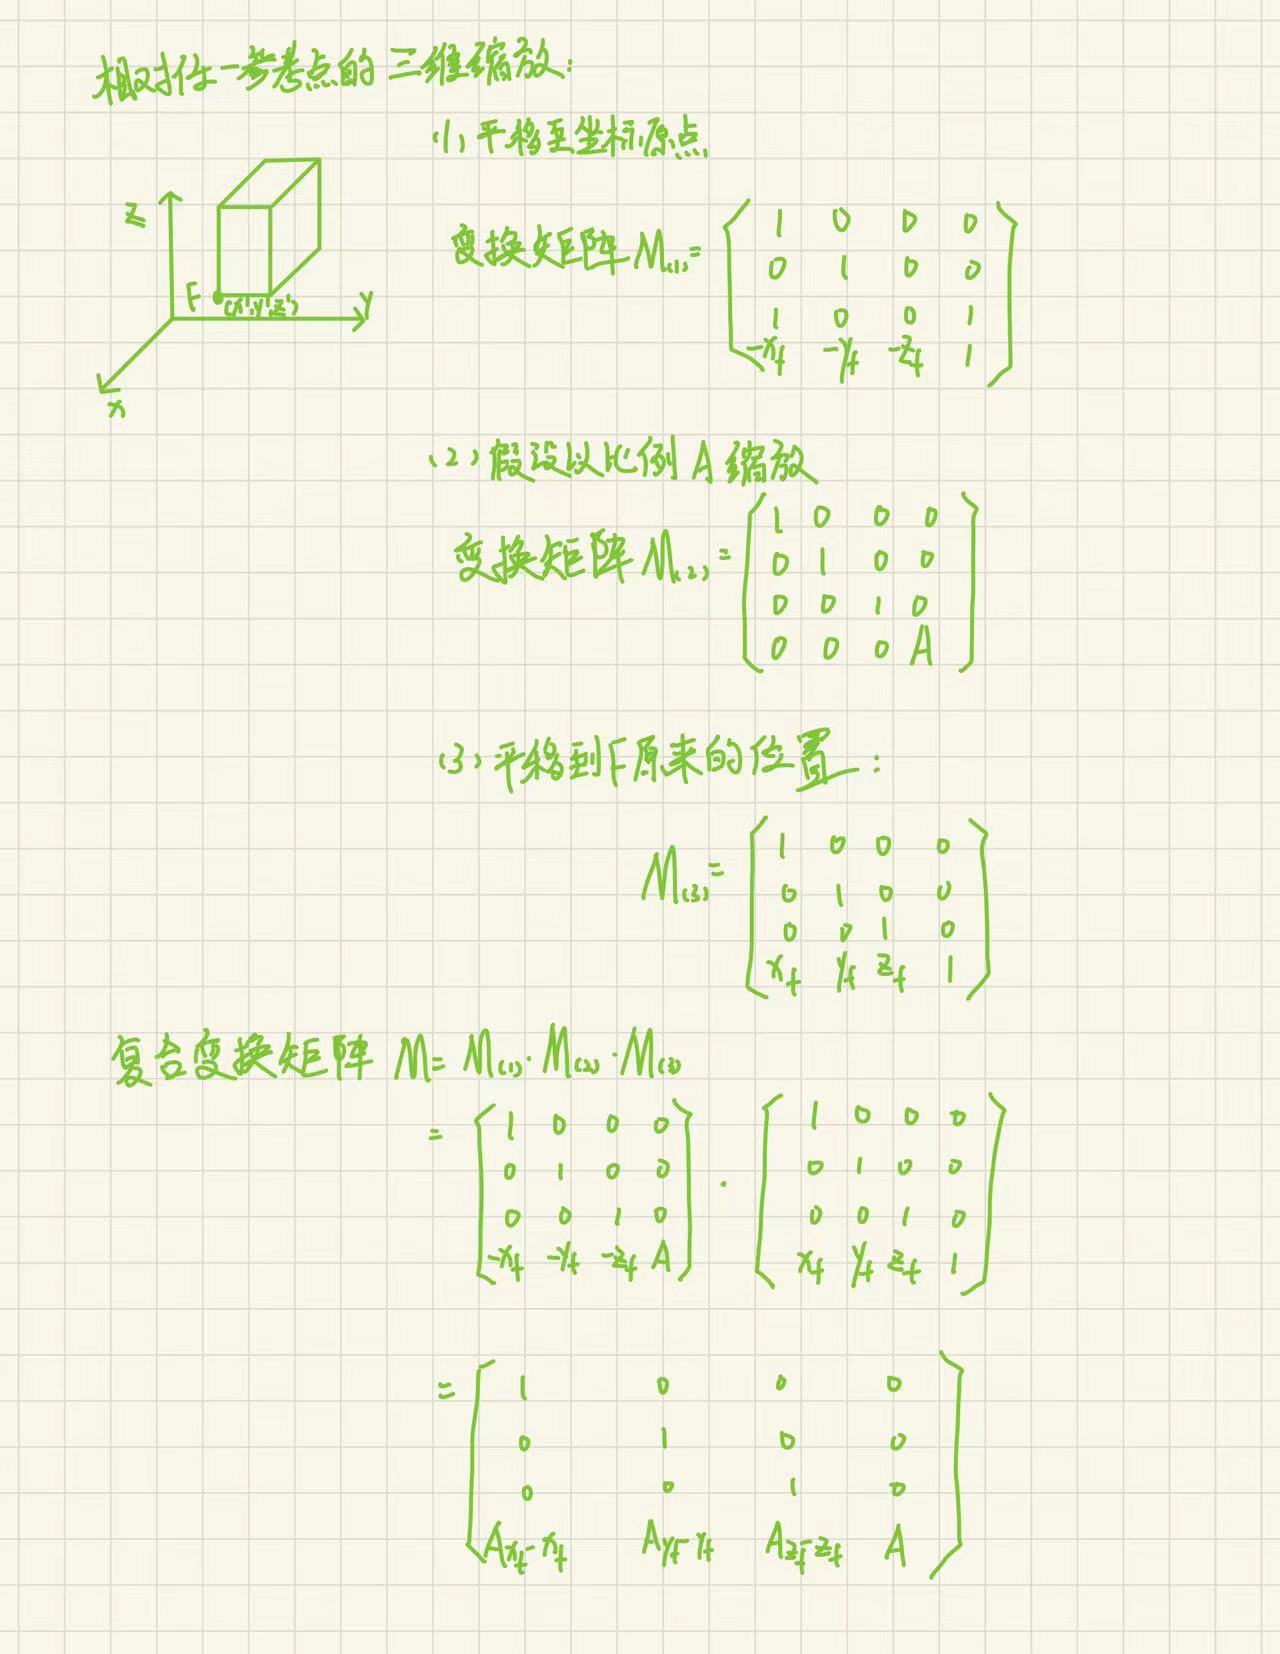 相对任一参考点的三维缩放:
(1) 平移至坐标原点
Z
F
(x',y',z')
Y
x
变换矩阵 M(1) =
1 0 0 0
0 1 0 0
1 0 0 1
-xf -yf -zf 1
(2) 假设以比例 A 缩放
变换矩阵 M(2) =
1 0 0 0
0 1 0 0
0 0 1 0
0 0 0 A
(3) 平移到F原来的位置:
M(3) =
1 0 0 0
0 1 0 0
0 0 1 0
xf yf zf 1
复合变换矩阵 M = M(1) · M(2) · M(3)
=
1 0 0 0
0 1 0 0
0 0 1 0
-xf -yf -zf A
·
1 0 0 0
0 1 0 0
0 0 1 0
xf yf zf 1
=
1 0 0 0
0 1 0 0
0 0 1 0
Axf-xf Ayf-yf Azf-zf A